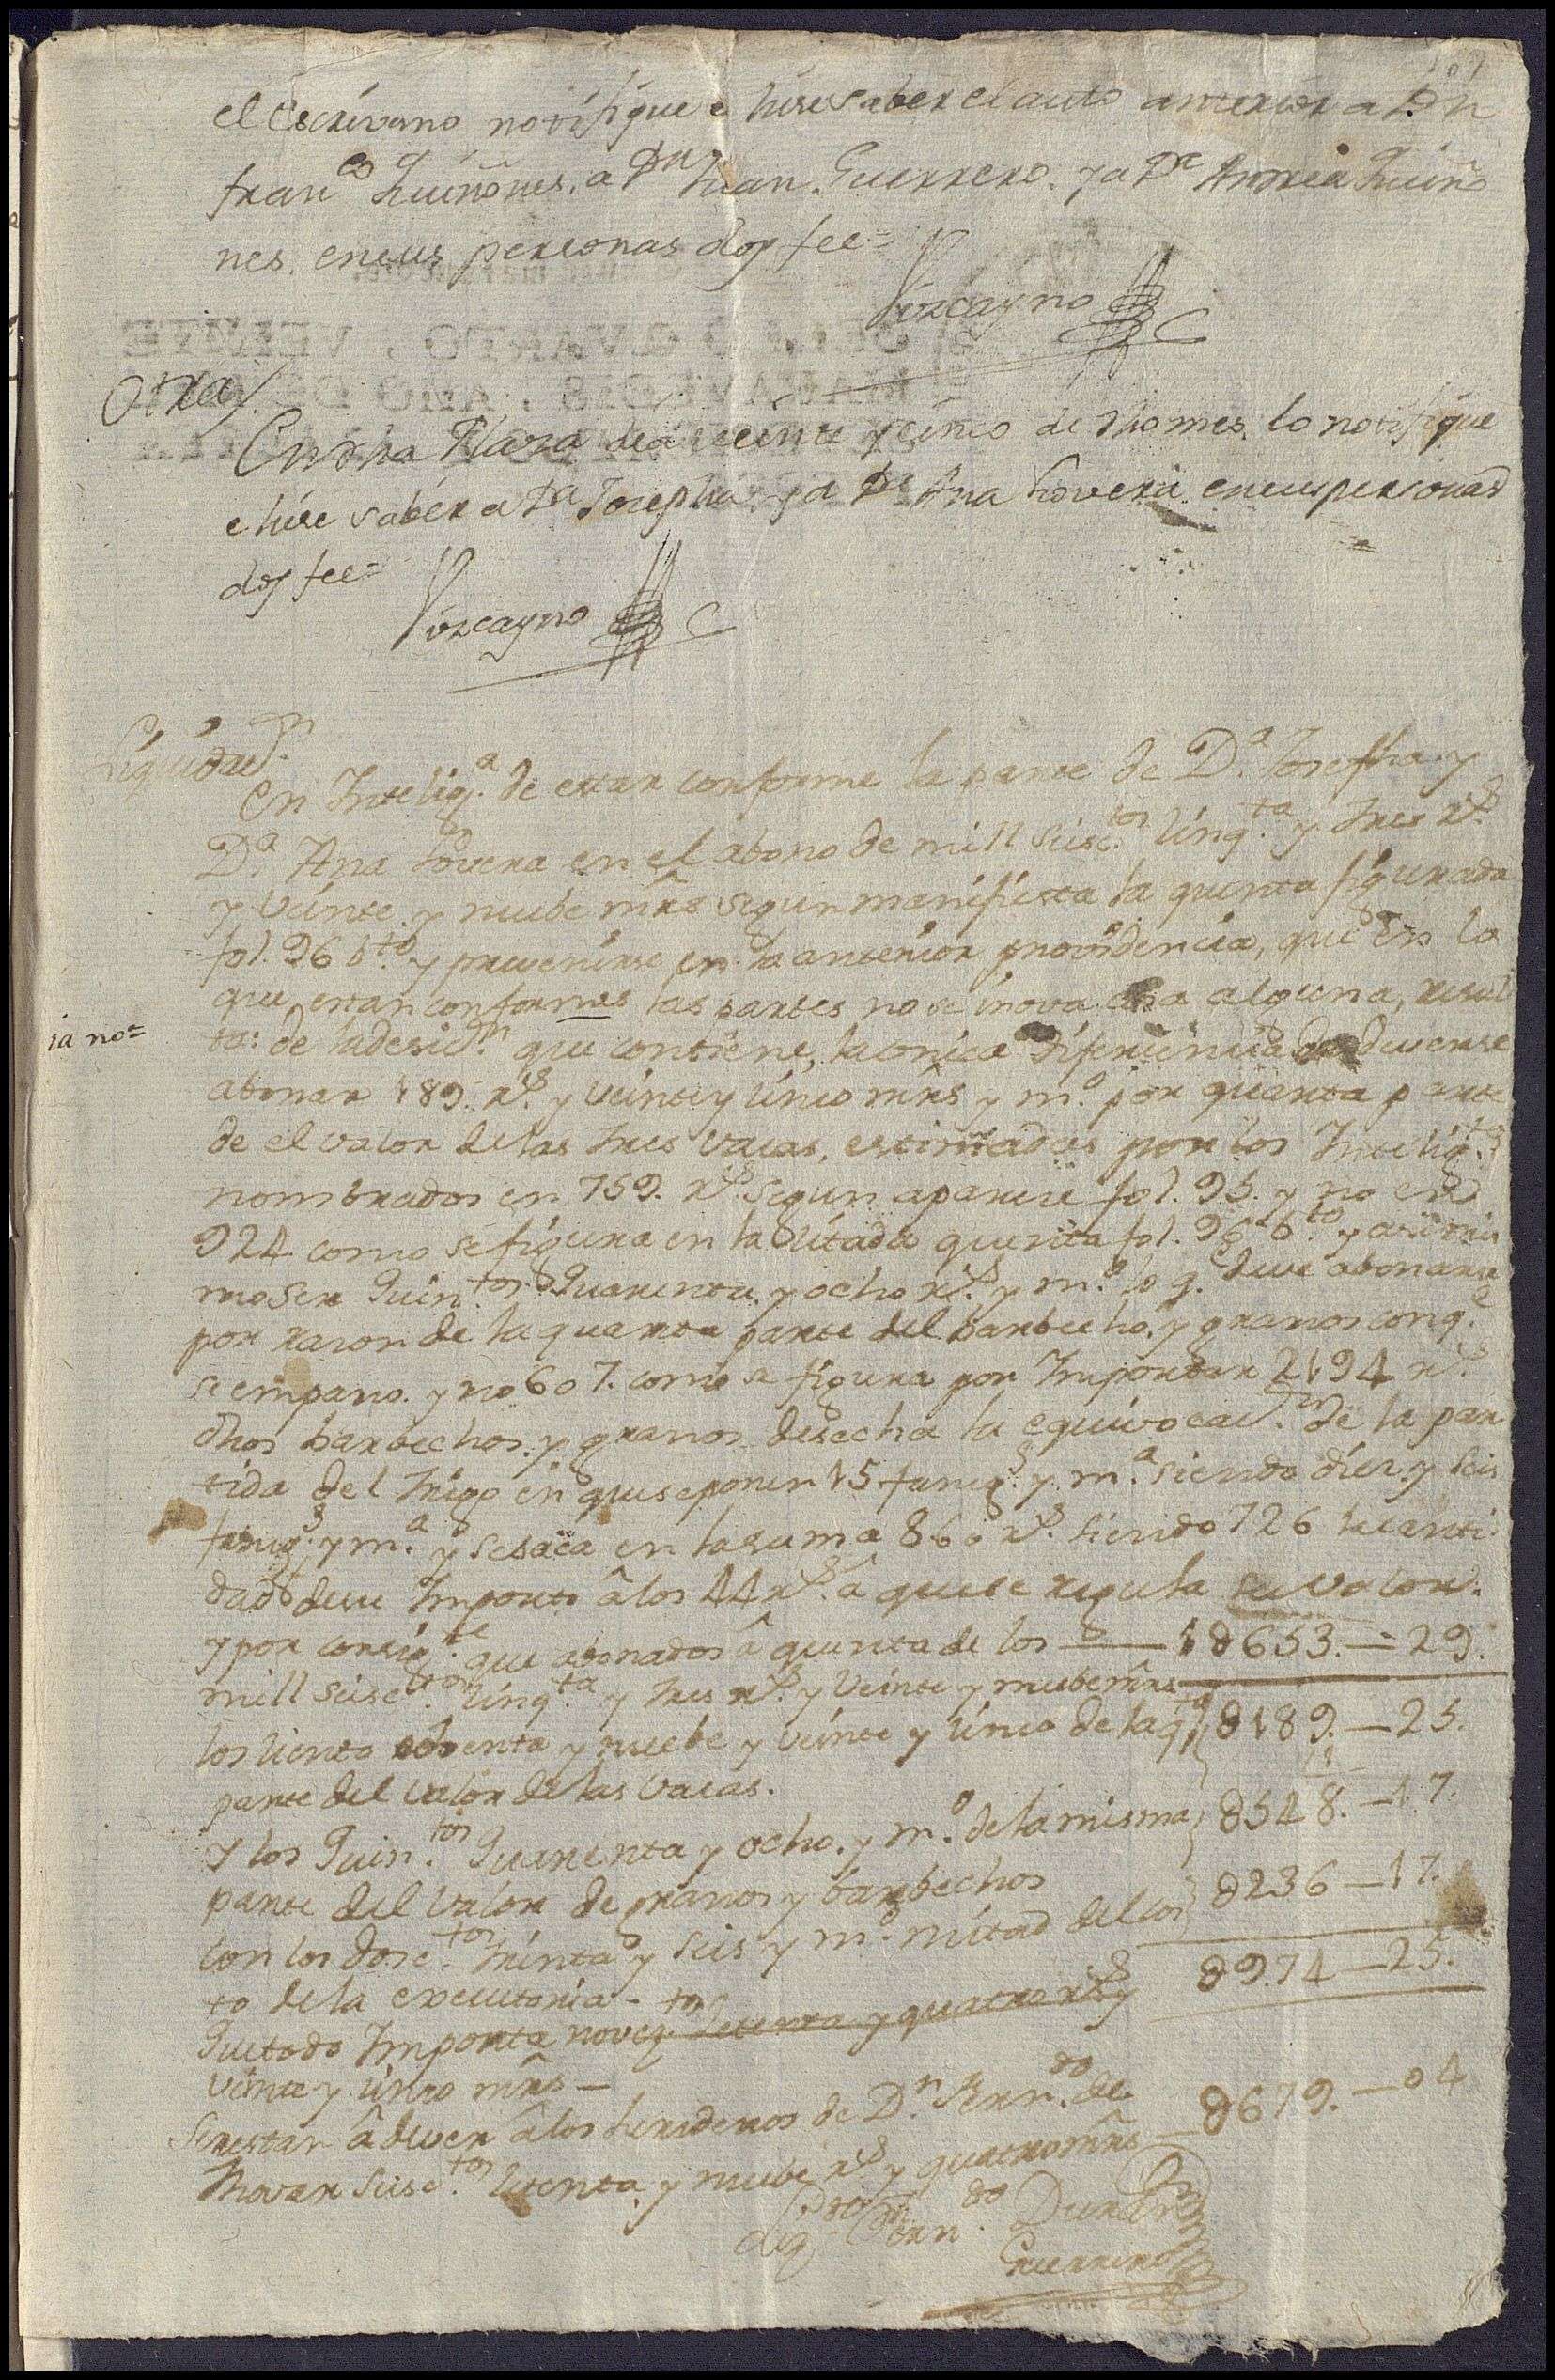 el escrivano notifique e hise saber el auto anterior a Dn
franco Quiñones, a Dn Juan Guerrero, y a Da Andrea Quiño
nes, en sus personas doy fee=
Vizcayno
Otra
En dha Plaza dia veinte y cinco de dho mes, lo notifique
e hise saber a Da Josepha y a Da Ana Lovera en sus personas
doy fee=
Vizcayno
Liquidan
En Inteliga de estar conforme la parte de Da Josepha y
Da Ana Lovera en el abono de mill seisctos cinqta y tres rs
y veinte y nuebe mrs segun manifiesta la quenta figurada
fol. 96 bto y prevenirse en la anterior providencia, que en lo
que estan conformes las partes no se inova cosa alguna, resul
ta: de la desicn que contiene, la unica diferiencia de deverse
abonar 189. rs y veinte y cinco mrs y mo por quarta parte
de el valor de las tres vacas, estimadas por los Inteligtes
nombrados en 759. rs segun aparece fol. 95. y no en
924 como se figura en la citada quenta fol. 96 bto y asimis
mo ser Quintos Quarenta y ocho rs y mo lo q. deve abonarse
por razon de la quarta parte del barbecho, y granos con qe
se empano. y no 607. como se figura por Importar 2194 rs
dhos barbechos, y granos desecha la equivocacn de la par
tida del trigo en que se ponen 15 fanegs y ma siendo diez y seis
fanegs y ma y se saca en la suma 860 rs siendo 726 la canti
dad de su Importe â los 44 rs â que se regula su valor.
y por consigte que abonados â quenta de los — 1 8653. — 29.
mill seisctos cinqta y tres rs y veinte y nuebe mrs
los ciento ochenta y nuebe y veinte y cinco de la qta 8189. — 25.
parte del valor de las vacas.
Y los Quintos Quarenta y ocho. y mo de la misma 8548. — 17.
parte del valor de granos y barbechos
con los dosctos treinta y seis y mo mitad del cos 8236 — 17.
to de la executoria -
Que todo Importa novectos setenta y quatro rs y 8974 — 25.
veinte y cinco mrs —
Se restan â dever â los herederos de Dn Ferndo de
Thovar seisctos setenta y nuebe rs y quatro mrs — 8679. — 04
Ligdo Ferndo Duran
Guerrero